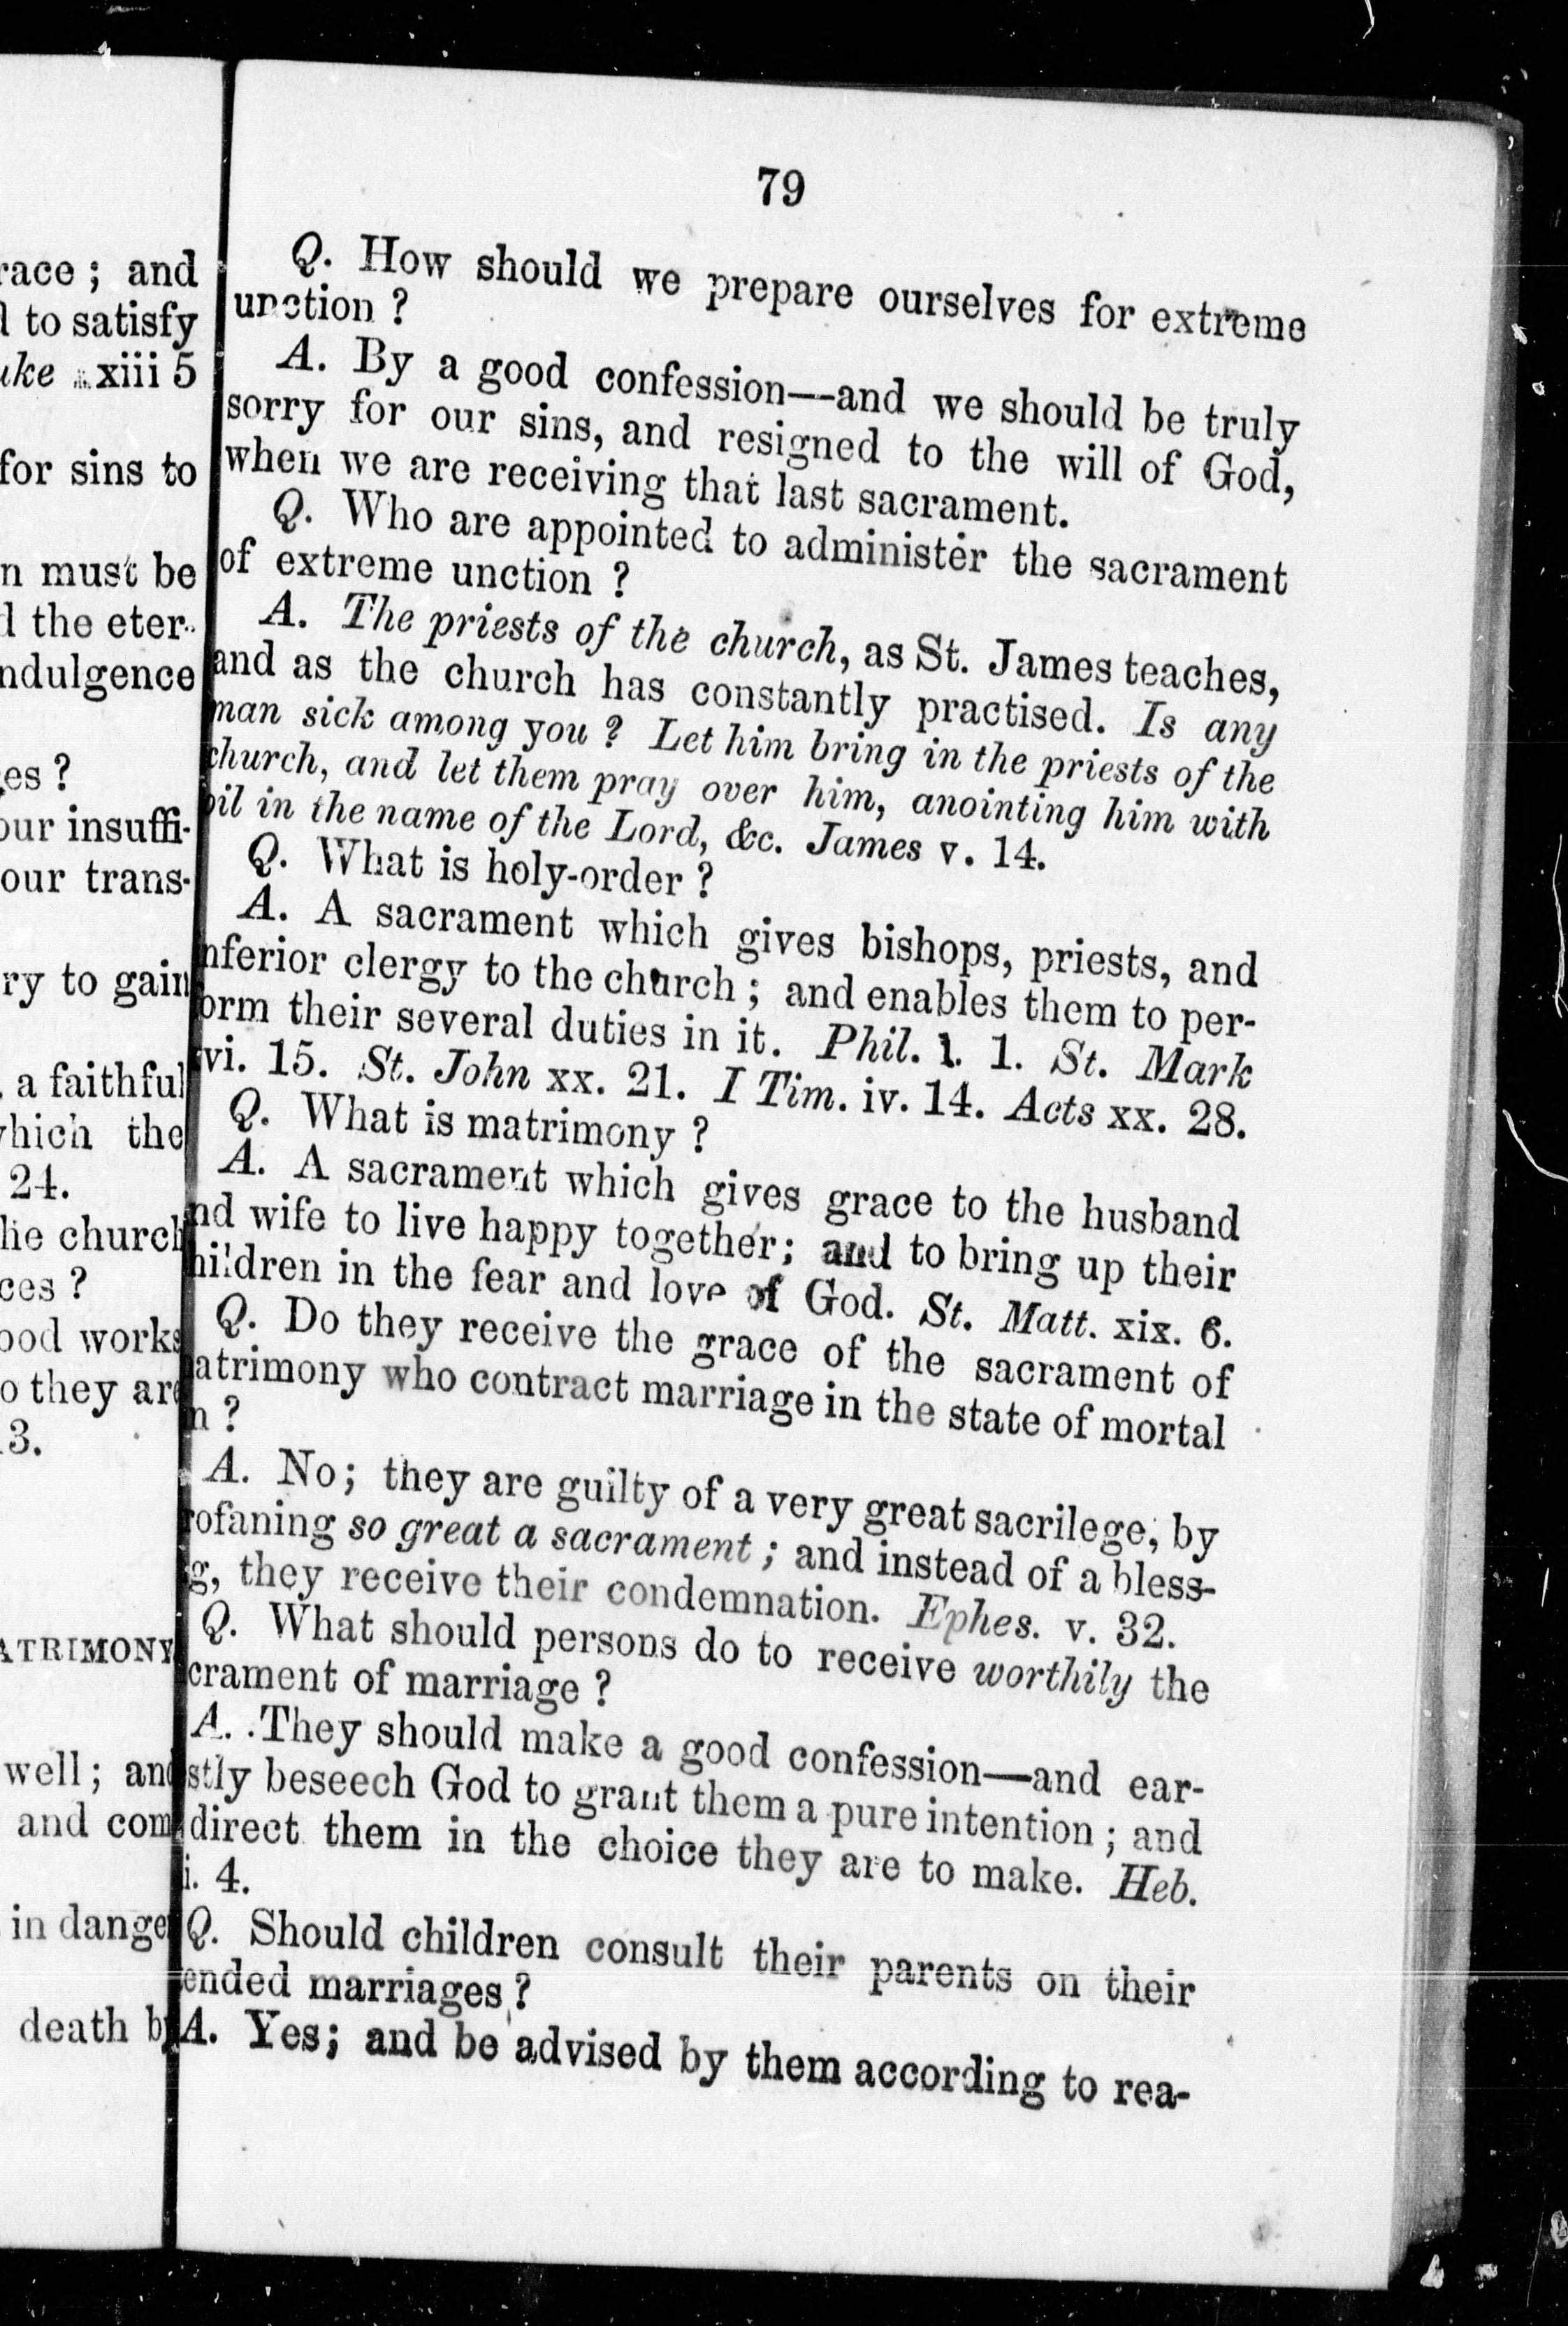 race ; and
l to satisfy
uke xiii 5
for sins to
n must be
d the eter-
ndulgence
es ?
our insuffi-
our trans-
ry to gain
a faithful
which the
24.
he church
ces ?
ood works
o they are
3.
ATRIMONY
well ; and
and com
in dange
death by
79
Q. How should we prepare ourselves for extreme
unction ?
A. By a good confession—and we should be truly
sorry for our sins, and resigned to the will of God,
when we are receiving that last sacrament.
Q. Who are appointed to administer the sacrament
of extreme unction ?
A. The priests of the church, as St. James teaches,
and as the church has constantly practised. Is any
man sick among you ? Let him bring in the priests of the
church, and let them pray over him, anointing him with
oil in the name of the Lord, &c. James v. 14.
Q. What is holy-order ?
A. A sacrament which gives bishops, priests, and
nferior clergy to the church ; and enables them to per-
orm their several duties in it. Phil. 1. 1. St. Mark
vi. 15. St. John xx. 21. I Tim. iv. 14. Acts xx. 28.
Q. What is matrimony ?
A. A sacrament which gives grace to the husband
nd wife to live happy together ; and to bring up their
hildren in the fear and love of God. St. Matt. xix. 6.
Q. Do they receive the grace of the sacrament of
atrimony who contract marriage in the state of mortal
n ?
A. No ; they are guilty of a very great sacrilege, by
rofaning so great a sacrament ; and instead of a bless-
g, they receive their condemnation. Ephes. v. 32.
Q. What should persons do to receive worthily the
crament of marriage ?
A. They should make a good confession—and ear-
stly beseech God to grant them a pure intention ; and
direct them in the choice they are to make. Heb.
i. 4.
Q. Should children consult their parents on their
ended marriages ?
A. Yes ; and be advised by them according to rea-